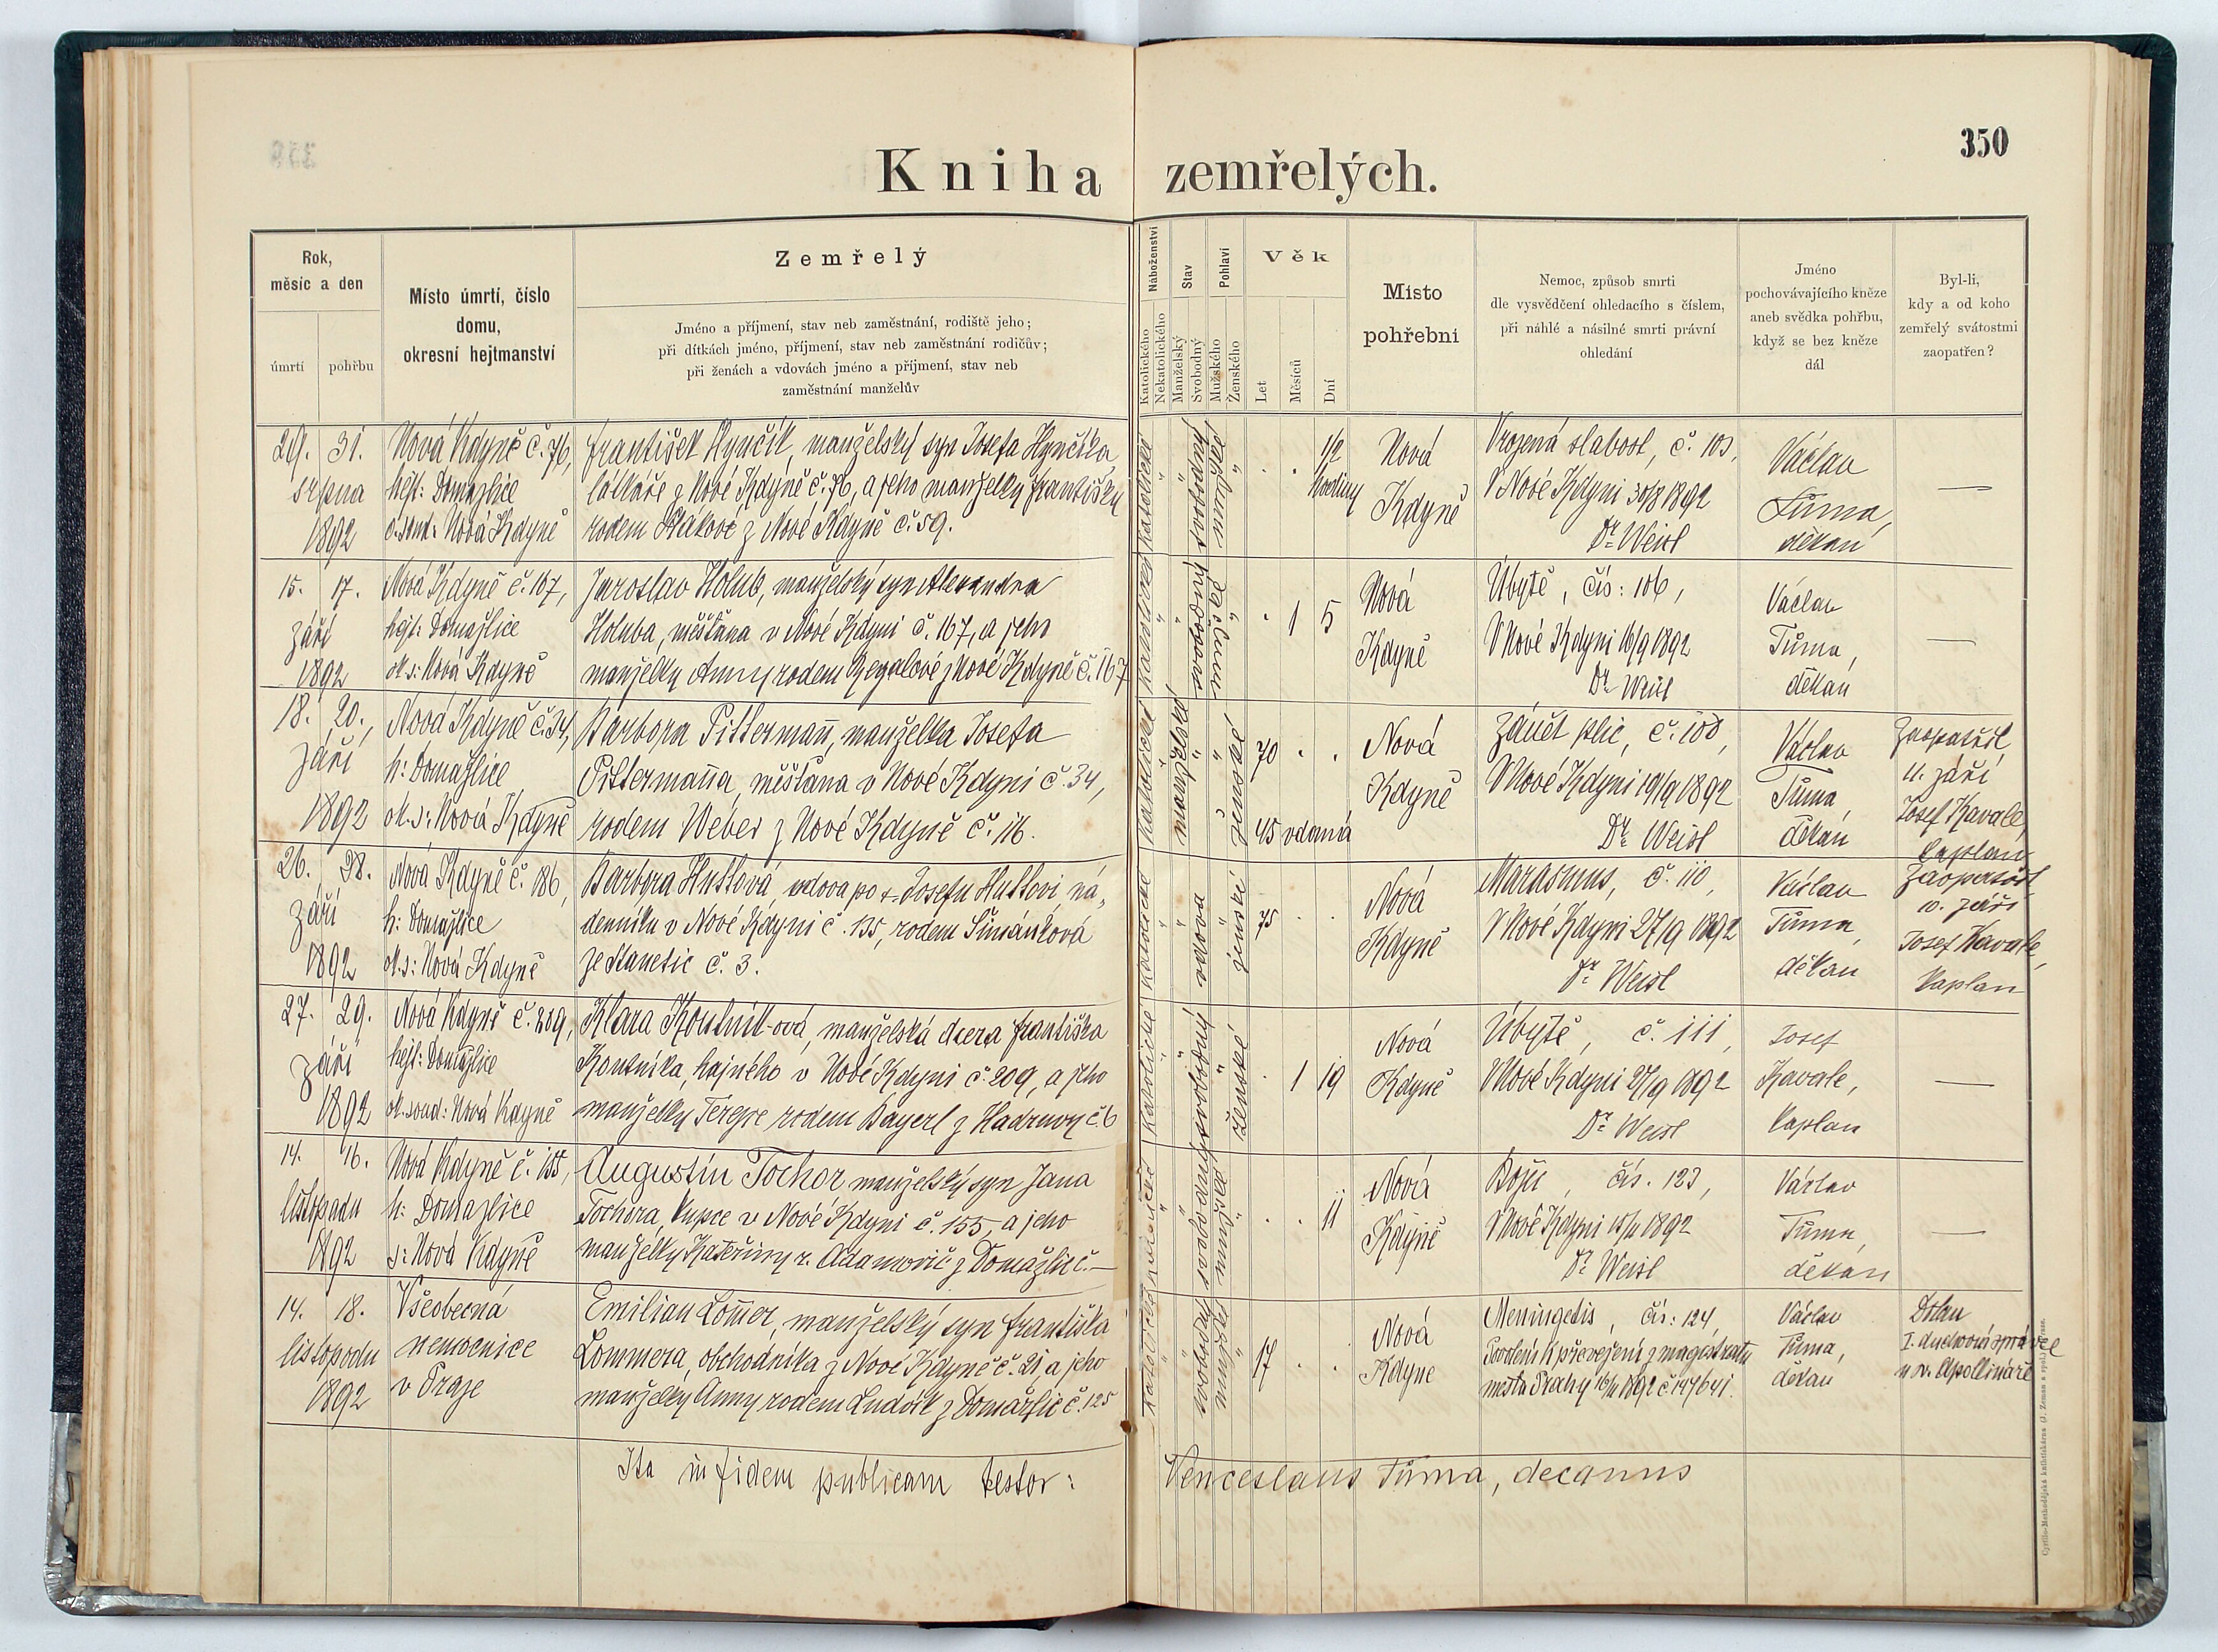 350
Kniha zemřelých.
Rok,
měsíc a den
úmrtí
pohřbu
Místo úmrtí, číslo
domu,
okresní hejtmanství
Zemřelý
Jméno a příjmení, stav neb zaměstnání, rodiště jeho;
při dítkách jméno, příjmení, stav neb zaměstnání rodičův;
při ženách a vdovách jméno a příjmení, stav neb
zaměstnání manželův
Náboženství
Katolického
Nekatolického
Stav
Manželský
Svobodný
Pohlaví
Mužského
Ženského
Věk
Let
Měsíců
Dní
Místo
pohřební
Nemoc, způsob smrti
dle vysvědčení ohledacího s číslem,
při náhlé a násilné smrti právní
ohledání
Jméno
pochovávajícího kněze
aneb svědka pohřbu,
když se bez kněze
dál
Byl-li,
kdy a od koho
zemřelý svátostmi
zaopatřen?
29. 31.
srpna
1892
Nová Kdyně č. 76,
hejt: Domažlice
Nová Kdyně
František Hynčík, manželský syn Josefa Hynčíka
látkáře z Nové Kdyně č. 76, a jeho manželky Františky
rodem z Nové Kdyně č. 59.
katolické
svobodný
mužské
1/2
hodiny
Nová
Kdyně
Vrozená slabost, č. 103,
V Nové Kdyni 30/8 1892
Dr. Weisl
Václav
Tůma,
děkan
—
15. 17.
září
1892
Nová Kdyně č. 167,
hejt: Domažlice
ok. s: Nová Kdyně
Jaroslav Holub, manželský syn Alexandra
Holuba, měšťana v Nové Kdyni č. 167, a jeho
manželky Anny rodem z Nové Kdyně č. 167
katolické
svobodný
mužské
1 5
Nová
Kdyně
Úbytě, čís: 106,
V Nové Kdyni 16/9 1892
Dr. Weisl
Václav
Tůma,
děkan
—
18. 20.,
září
1892
Nová Kdyně č. 34,
h: Domažlice
ok. s: Nová Kdyně
Barbora Pittermañ, manželka Josefa
Pittermaña, měšťana v Nové Kdyni č. 34,
rodem Weber z Nové Kdyně č. 116.
katolické
manželský
ženské
70
45 vdaná
Nová
Kdyně
Zánět plic, č. 108,
V Nové Kdyni 19/9 1892
Dr. Weisl
Václav
Tůma,
děkan
Zaopatřil
11. září
Josef Kavale,
kaplan
26. 28.
září
1892
Nová Kdyně č. 186,
h: Domažlice
ok. s: Nová Kdyně
Barbora Hutlová, vdova po + Josefu Hutlovi, ná-
denníku v Nové Kdyni č. 135, rodem Šimánková
ze Stanětic č. 3.
katolické
vdova
ženské
75
Nová
Kdyně
Marasmus, č. 110,
V Nové Kdyni 27/9 1892
Dr. Weisl
Václav
Tůma,
děkan
Zaopatřil
10. září
Josef Kavale,
kaplan
27. 29.
září
1892
Nová Kdyně č. 209,
hejt: Domažlice
ok. soud: Nová Kdyně
Klara Koutník-ová, manželská dcera Františka
Koutníka, hajného v Nové Kdyni č. 209, a jeho
manželky Terezie rodem Bayerl z Hadruvy č. 6
katolické
svobodný
ženské
1 19
Nová
Kdyně
Úbytě, č. 111,
V Nové Kdyni 27/9 1892
Dr. Weisl
Josef
Kavale,
kaplan
—
14. 16.
listopadu
1892
Nová Kdyně č. 155,
h: Domažlice
s: Nová Kdyně
Augustin Tochor manželský syn Jana
Tochora, kupce v Nové Kdyni č. 155, a jeho
manželky Kateřiny r. Adamovič z Domažlic č. —
katolické
svobodný
mužské
11
Nová
Kdyně
Božec, čís. 123,
V Nové Kdyni 15/11 1892
Dr. Weisl
Václav
Tůma,
děkan
—
14. 18.
listopadu
1892
Všeobecná
nemocnice
v Praze
Emilian Lom̃er, manželský syn Františka
Lommera, obchodníka z Nové Kdyně č. 21, a jeho
manželky Anny rodem Ludvík z Domažlic č. 125
katolické
svobodný
mužské
17
Nová
Kdyně
Meningetis, čís: 124,
Povolení k převežení z magistratu
města Prahy 16/11 1892 č. 147641.
Václav
Tůma,
děkan
I. duchovní správce
u sv. Apollináře
Ita in fidem publicam testor: Venceslaus Tůma, decanus